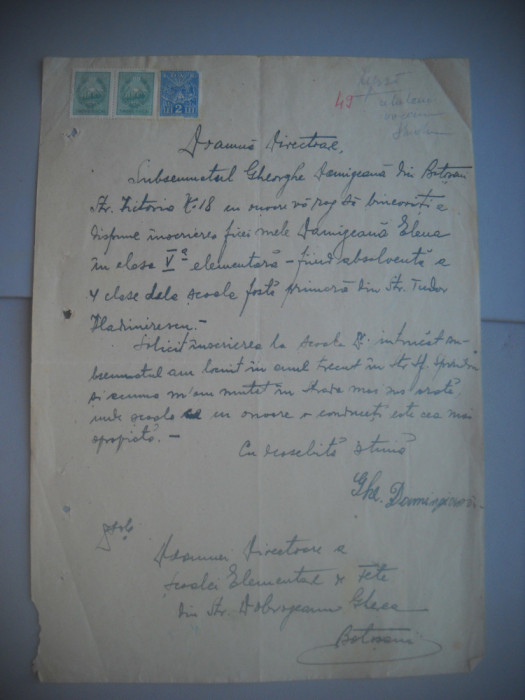 45
Doamnă Directoare,
Subsemnatul Gheorghe Damigeană din Botoșani
Str. Victoria N. 18 cu onoare vă rog să binevoiți a
dispune înscrierea ficei mele Damigeană Elena
în clasa Vª elementară – fiind absolventă a
4 clase dela școala fostă primară din Str. Tudor
Vladimirescu. –
Solicit înscrierea la școala întrucât
am locuit în anul trecut în str. Sf. Spiridon
și acuma m'am mutat în strada mai sus
unde școala ce cu onoare o conduceți est cea mai
apropiată. –
Cu deosebită stimă
Ghe.
Doamnei Directoare a
Școalei Elementare de Fete
din Str. Dobrogeanu Gherea
Botoșani